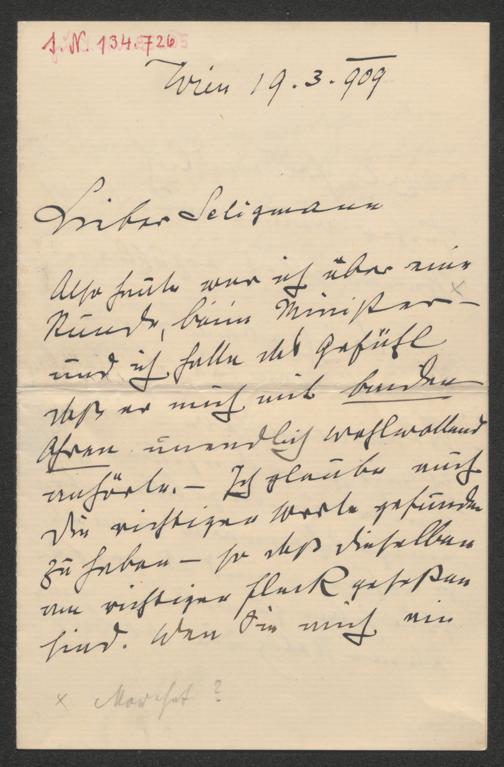 J. N. 134.726
Wien 19.3.909
Lieber Seligmann
Also heute war ich über eine
Stunde, beim Minister x –
und ich hatte das Gefühl
daß er mich mit beiden
Ohren unendlich wohlwollend
anhörte. – Ich glaube auch
die richtigen Worte gefunden
zu haben – so daß dieselben
am richtigen Fleck gesessen
sind. Wen Sie mich ein
x Marchet ?